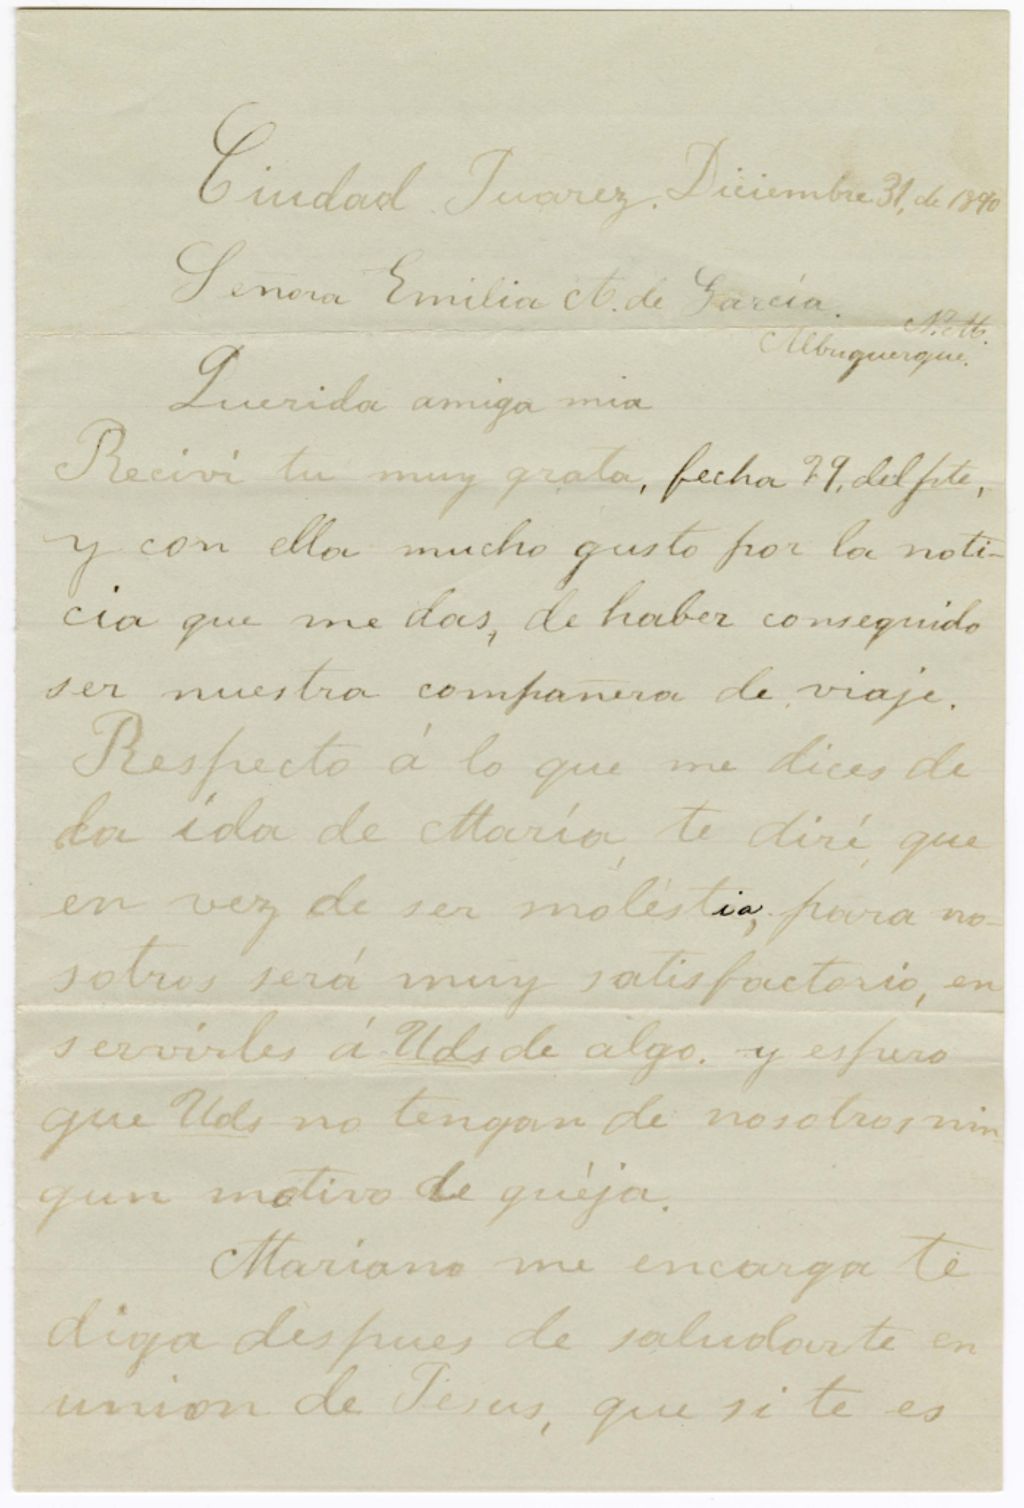 Ciudad Juarez, Diciembre 31, de 1890
Señora Emilia A. de García.
N. M.
Albuquerque.
Querida amiga mia
Recivi tu muy grata, fecha 29, del pte,
y con ella mucho gusto por la noti-
cia que me das, de haber conseguido
ser nuestra compañera de viaje.
Respecto á lo que me dices de
la ida de María, te diré, que
en vez de ser moléstia, para no-
sotros será muy satisfactorio, en
servirles á Uds de algo. y espero
que Uds no tengan de nosotros nin
gun motivo de quéja.
Mariano me encarga te
diga despues de saludarte en
union de Jesus, que si te es